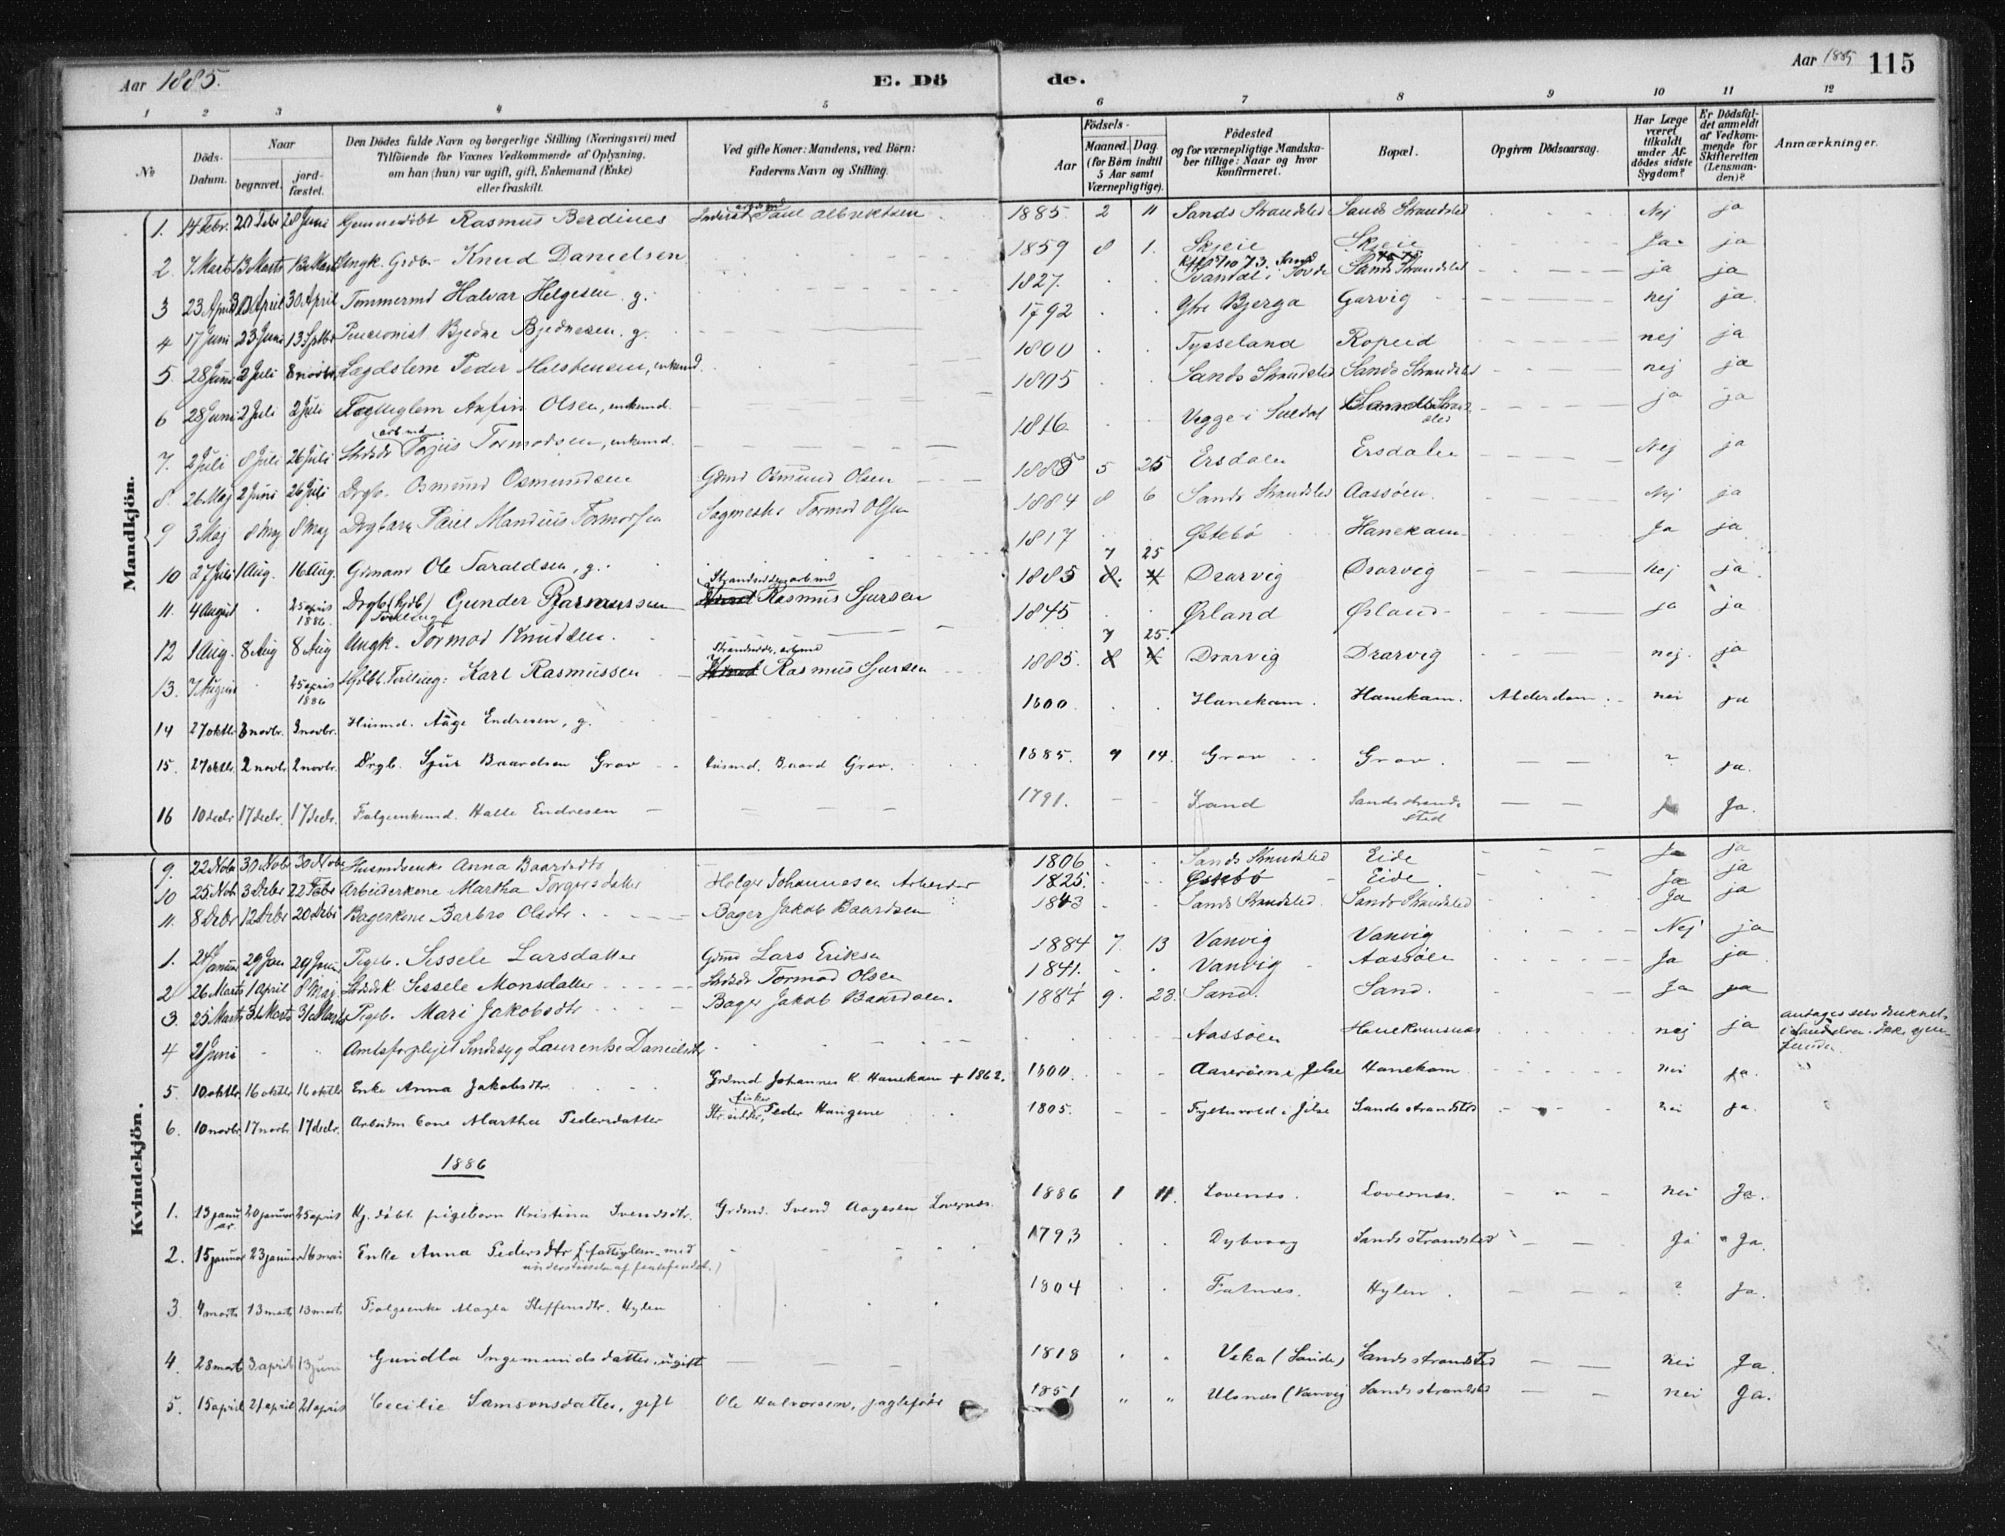 Aar 1885.
E. Dö
de.
Aar 1885
115
1 2 3 4 5 6 7 8 9 10 11 12
No
Döds-Datum.
Naar
begravet.
jord-fæstet.
Den Dödes fulde Navn og borgerlige Stilling (Næringsvei) med
Tilföiende for Vaxnes Vedkommende af Oplysning,
om han (hun) var ugift, gift, Enkemand (Enke)
eller fraskilt.
Ved gifte Koner: Mandens, ved Börn:
Faderens Navn og Stilling.
Födsels-
Aar
Maaned. Dag.
(for Börn indtil
5 Aar samt
Værnepligtige).
Födested
og for værnepligtige Mandska-
ber tillige: Naar og hvor
konfirmeret.
Bopæl.
Opgiven Dödsaarsag.
Har Læge
været
tilkaldt
under Af-
dödes sidste
Sygdom?
Er Dödsfal-
det anmeldt
af Vedkom-
mende for
Skifteretten
(Lensman-
den)?
Anmærkninger.
Mandkjön.
1. 14 Febr. 20 Febr 28 Juni Gjemmedöbt Rasmus Berdines Paul Albrektsen 1885. 2 11 Sands Strandsted Sands Strandsted Nej ja
2 7 Marts 13 Marts 13 Marts Ungk. Grdb. Knud Danielsen 1859 8 1. Skjeie Skjeie Ja ja
3 23 April 30 April 30 April Tømmermd Halvar Helgesen g. 1827. Svandal i Sovde Sands Strandsted ja ja
4 17 Juni 23 Juni 13 Septbr Pensionist Bjedne Bjednesen. g. 1792 Ytre Bjerga Garvig nej ja.
5. 28 Juni 2 Juli 8 novbr. Lægdslem Peder Halstensen, enkemd. 1800 Tysseland Ropeid nej ja
6 28 Juni 2 Juli 2 Juli Anfin Olsen, enkemd. 1805 Sands Strandsted Sands Strandsted nej ja
7. 2 Juli 8 Juli 26 Juli arbmd Torjus Tormodsen, enkemd. 1816 Vegge i Suldal Sands Strandsted ja ja
8. 26 Maj 2 Juni 26 Juli Drgb. Osmund Osmundsen Gdmd Osmund Olsen 1885 5 25 Ersdalen Ersdalen Nej ja
9 3 Maj 8 Maj 8 Maj Drgbarn Paul Mandius Tormodsen Sagmester Tormod Olsen 1884 8 6 Sands Strandsted Aassøen. Nej ja
10 27 Juli 1 Aug. 16 Aug. Gdmand Ole Taraldsen, g. 1817 Østebø Hanekam Ja ja
11. 4 August 25 april 1886 Drgb (hjdb) Tvilling Gunder Rasmussen Strandsidderarbmd Rasmus Sjursen 1885 7 25 Drarvig Drarvig Nej ja
12 1 Aug. 8 Aug 8 Aug Ungk. Tormod Knudsen. 1845 Ørland Ørland ja ja
13. 7 August 25 april 1886 Hjdbt. Tvilling: Karl Rasmussen Strandsidr. arbmd Rasmus Sjursen 1885. 7 25. Drarvig Drarvig nej. ja
14 27 oktbr 3 novbr. 3 novbr. Husmd. Aage Endresen, g. 1800 Hanekam. Hanekam. Alderdom. nei ja
15. 27 oktbr 2 novbr 2 novbr. Drgb. Sjur Baardsen Grov Husmd. Baard Grov. 1885. 9 14. Grov Grov. ? ja.
16 10 decbr 17 decbr. 17 decbr. Folgeenkemd. Halle Endresen 1791. Sand Sands strandsted Ja Ja.
Kvindekjön.
9. 22 Nobr 30 Nobr 30 Nobr Husmdsenke Anna Baardsdtr 1806 Sands Strandsted Eide Ja ja
10 25 Nob 3 Debr 22 Febr Arbeiderkone Martha Torgersdatter Helge Johannesen Arbeider 1825. Østebø Eide. Ja ja
11. 8 Debr 12 Debr 20 Debr Bagerkone Barbro Olsdtr. Bager Jakob Baardsen 1843 Sands Strandsted. Sands Strandsted. Ja ja
1. 21 Januar 29 Jan 29 Juni Pigeb. Sessele Larsdatter Gdmd Lars Eriksen 1884 7. 13 Vanvig Vanvig Nej ja
2 26 Marts 1 April 8 Maj Sessele Monsdatter Tormod Olsen 1841. Vanvig Aassøen Ja ja.
3. 25 Marts 31 Marts 31 Marts Pigeb. Mari Jakobsdtr Bager Jakob Baardsen. 1884 9. 23. Sand. Sand. Ja ja
4 21 Juni Amtsforplejet Sindssyg Laurenke Danielsdtr Aassøen Hanekamsnæs nej ja antages selv druknet
5 10 oktbr 16 oktbr 16 oktbr Enke Anna Jakobsdtr. Grdmd. Johannes K. Hanekam + 1862. 1800 Aarerøen i Jelse Hanekam nei ja.
6. 10 novbr. 17 novbr 17 decbr. Arbeidm kone Martha Pedersdatter Str.sidder, fisker Peder Haugene 1805. i Jelse Sands strandsted nei ja.
1886
1. 13 januar. 20 januar 25 april Hj. døbt pigebarn Kristina Svendsdtr. Grdmd. Svend Aagesen Lovernæs. 1886 1 11. Lovernæs. Lovernæs. nei Ja.
2. 15 januar 23 januar 16 mai Enke Anna Pedersdtr (fattiglem med understøttelse af fattigfondet.) 1793 Dybvaag Sands strandsted Ja Ja.
3 4 marts 13 marts 13 marts Folgeenke Magla Steffensdtr. Hylen 1804 Fatnes. Hylen. ? Ja.
4. 28 marts 3 april 13 juni Gundla Ingemundsdatter, ugift 1818 Veka (Saude) Sands strandsted nei Ja.
5. 15 april 21 april 21 april Cecilie Samsonsdatter, gift Ole Halvorsen, jagtefører 1851 Ulsnæs (Vanvig Sands strandsted nei Ja.